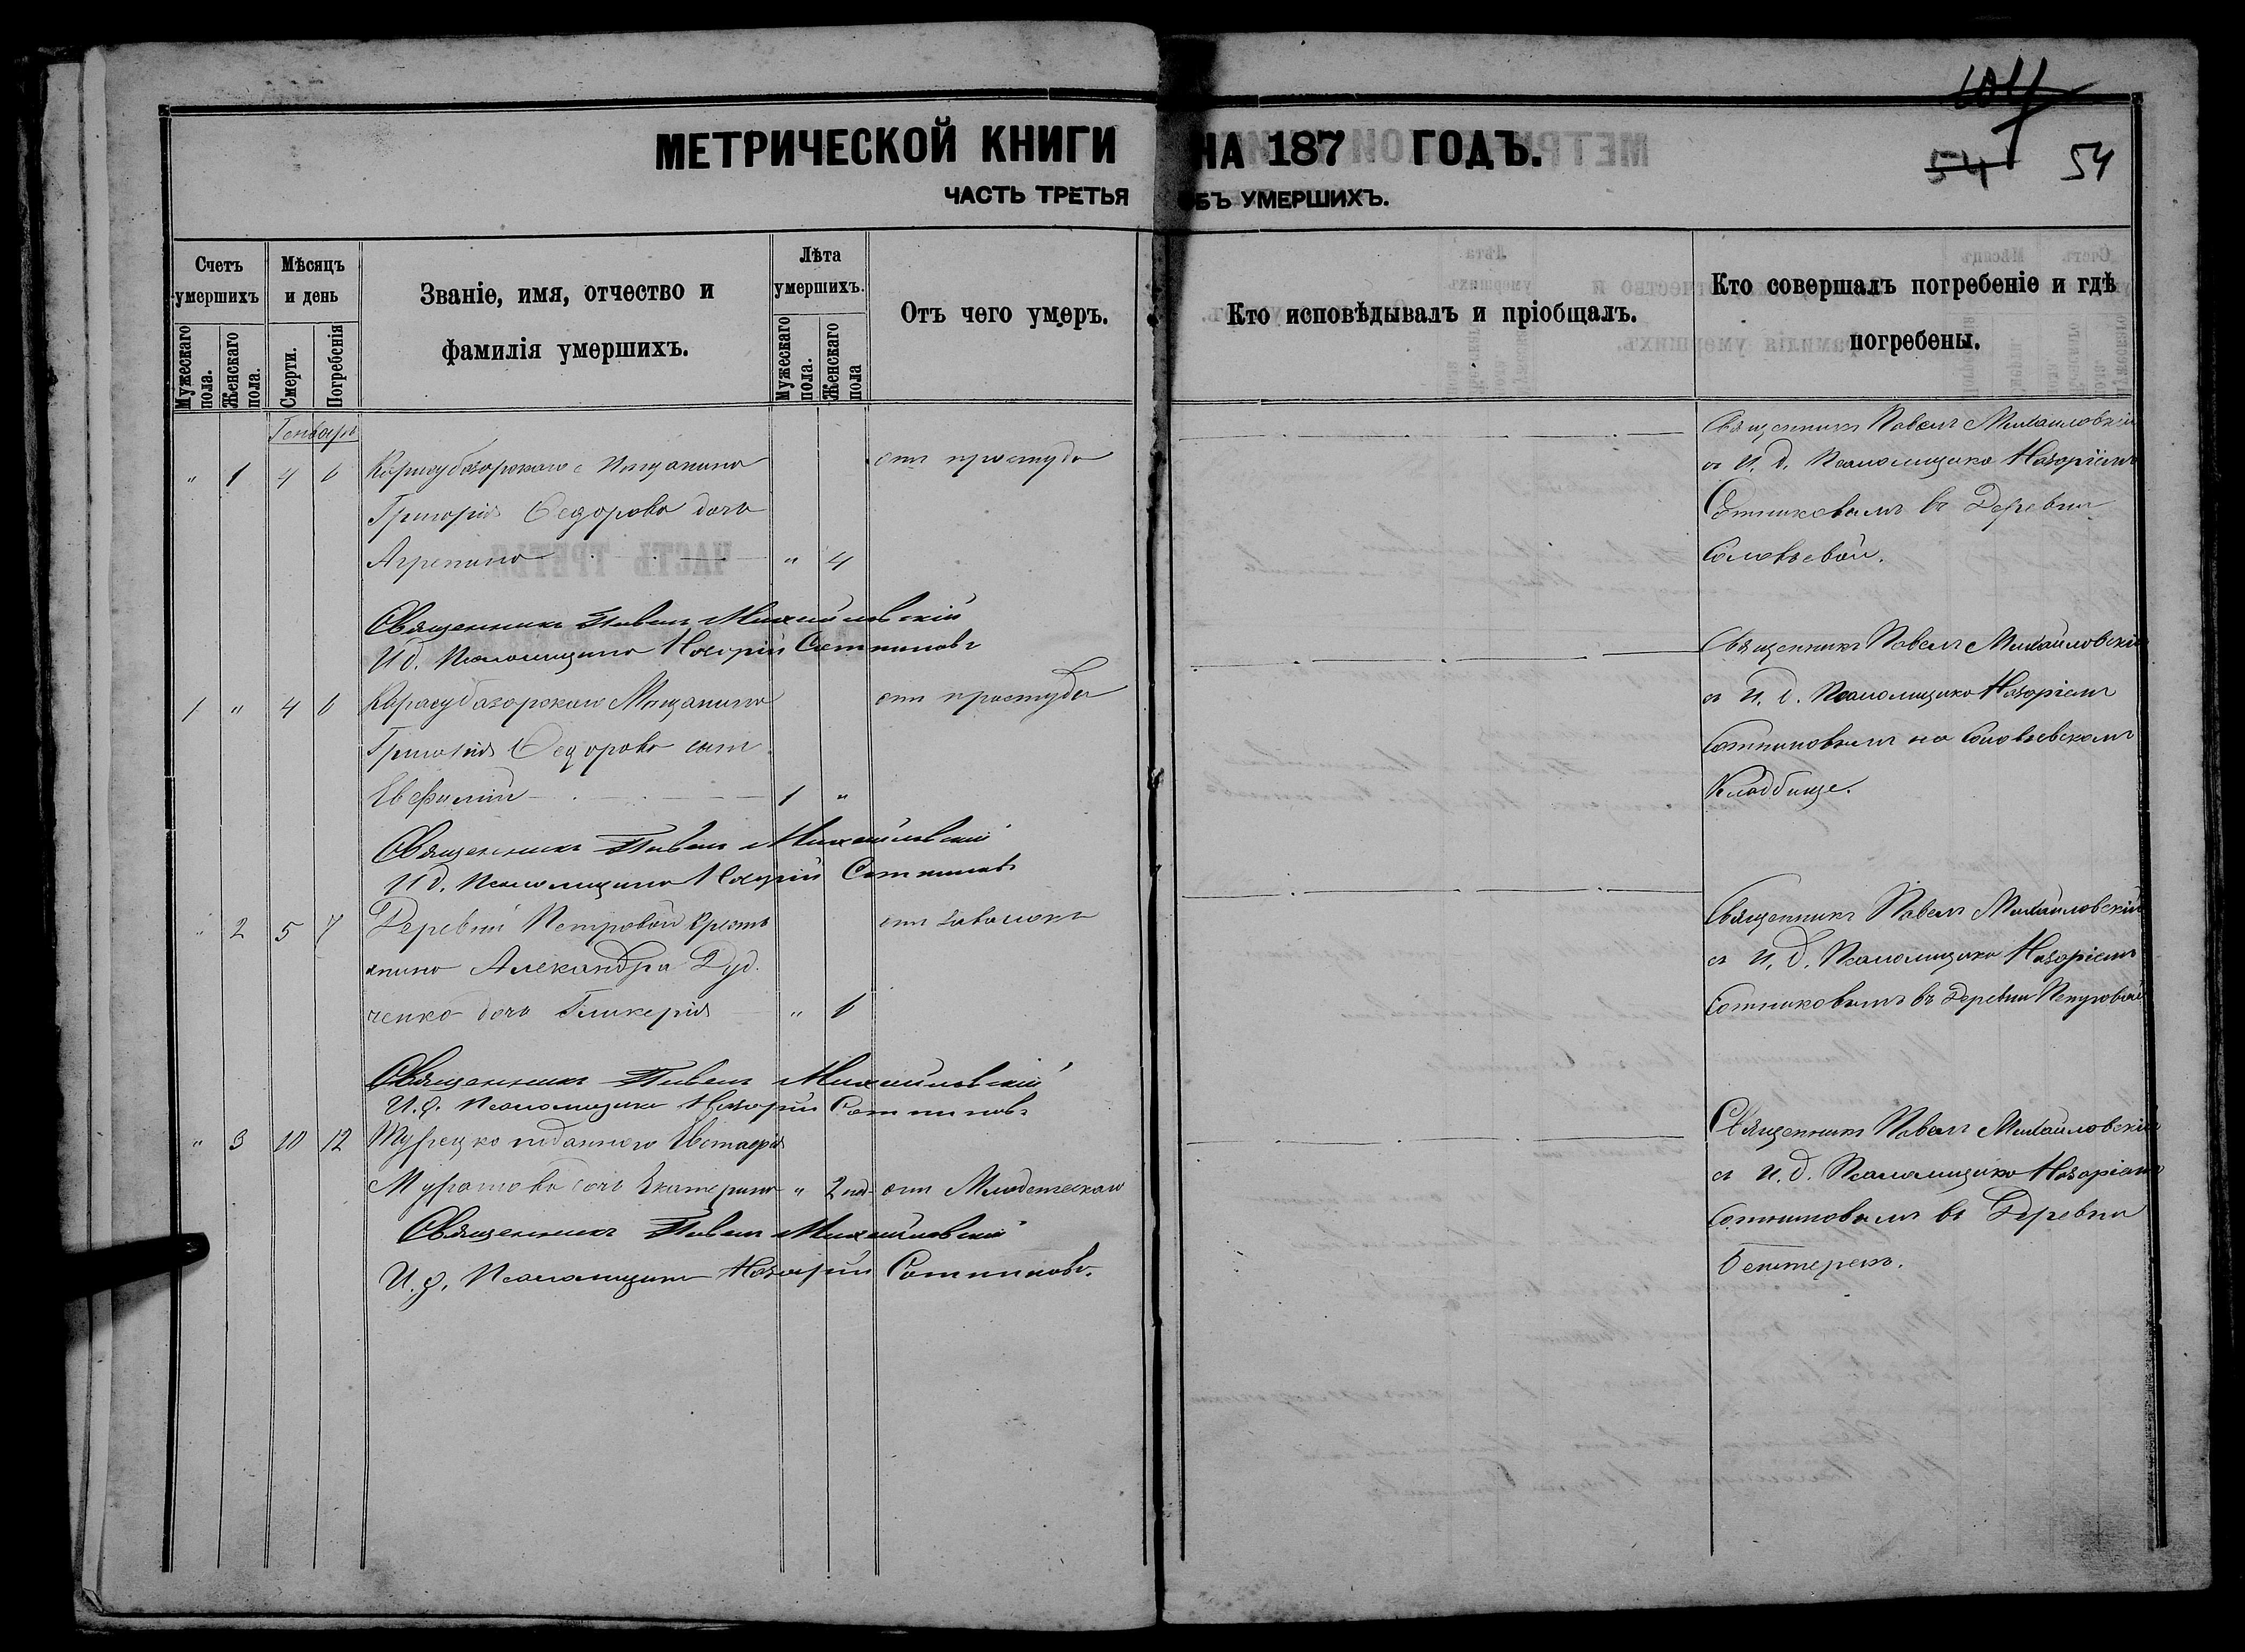 МЕТРИЧЕСКОЙ КНИГИ НА 187 ГОДЪ.
54 54
ЧАСТЬ ТРЕТЬЯ ОБЪ УМЕРШИХЪ.
Счетъ умершихъ
Мужескаго пола.
Женскаго пола.
Мѣсяцъ и день
Смерти.
Погребенія
Званіе, имя, отчество и фамилія умершихъ.
Лѣта умершихъ.
Мужескаго пола.
Женскаго пола
Отъ чего умеръ.
Кто исповѣдывалъ и пріобщалъ.
Кто совершалъ погребеніе и гдѣ погребены.
Генварь
" 1 4 6 Карасубазарскаго Мещанина
Григорія Федорова дочь
Агрепина " 4
отъ простуды
Священникъ Павелъ Михайловскій
съ И. д. Псаломщика Назаріемъ
Сотниковымъ въ Деревни
Соловьевой.
Священникъ Павелъ Михайловскій
И д. Псаломщика Назарій Сотниковъ
1 " 4 6 Карасубазарскаго Мещанина
Григорія Федорова сынъ
Евфимій 1 "
отъ простуды
Священникъ Павелъ Михайловскій
съ И. д. Псаломщика Назаріемъ
Сотниковымъ на Соловьевскомъ
Кладбище.
Священникъ Павелъ Михайловскій
И д. Псаломщика Назарій Сотниковъ
" 2 5 7 Деревни Петровой Кресть
янина Александра Дуд
ченко дочь Гликерія " 6
отъ завалокъ
Священникъ Павелъ Михайловскій
съ И. д. Псаломщика Назаріемъ
Сотниковымъ въ Деревни Петровой
Священникъ Павелъ Михайловскій
И. д. Псаломщика Назарій Сотниковъ
" 3 10 12 Турецко подданного Евстафія
Муратова дочь Екатерина " 2 нед. отъ Младенческаго
Священникъ Павелъ Михайловскій
съ И. д. Псаломщика Назаріемъ
Сотниковымъ въ Деревни
Священникъ Павелъ Михайловскій
И. д. Псаломщика Назарій Сотниковъ.